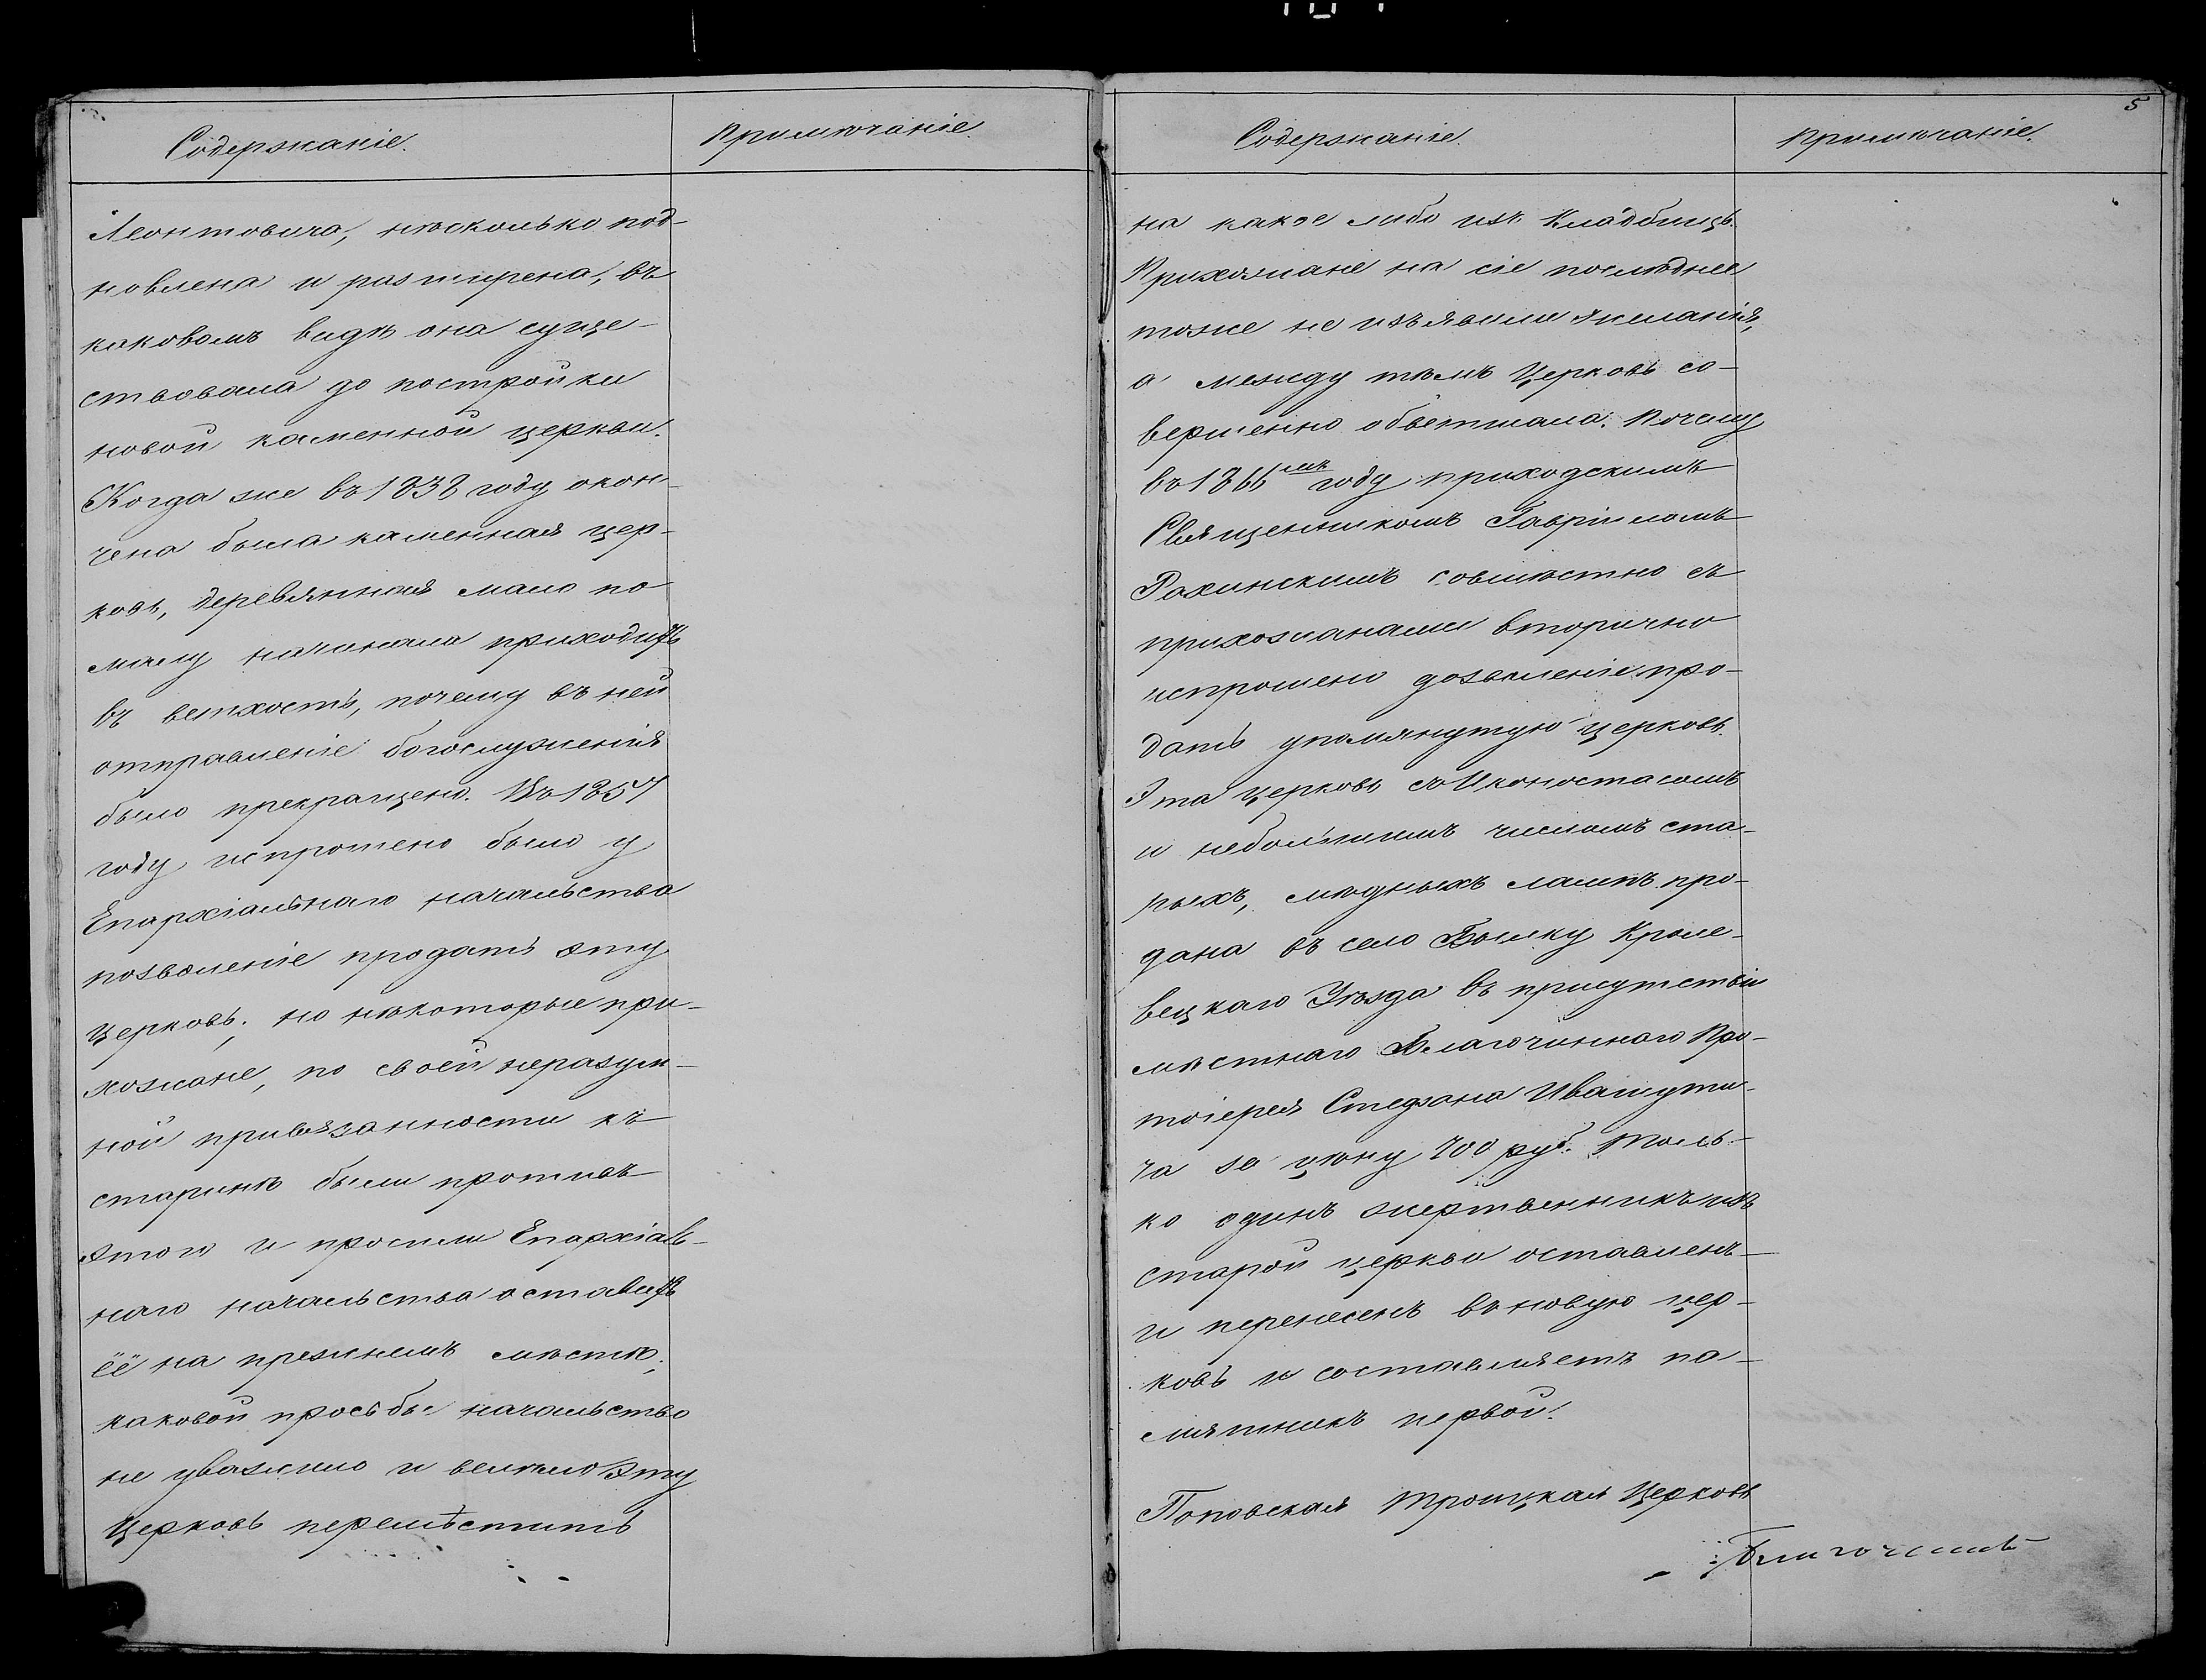 Содержаніе.
Примѣчаніе.
Леонтовича, нѣсколько под-
новлена и розширена, въ
каковомъ видѣ она суще-
ствовала до постройки
новой каменной церкви.
Когда же въ 1838 году окон-
чена была каменная цер-
ковь, деревянная мало по
малу начинала приходить
въ ветхость, почему въ ней
отправленіе богослуженія
было прекращено. Въ 1857
году испрошено было у
Епархіальнаго начальства
позволеніе продать эту
церковь; но нѣкоторые при-
хожане, по своей неразум-
ной привязанности къ
старинѣ были противъ
этого и просили Епархіаль-
наго начальства оставить
её на прежнемъ мѣстѣ;
каковой просьбы начальство
не уважило и велѣло эту
Церковь перемѣстить
5
Содержаніе.
Примѣчаніе.
на какое либо изъ кладбищъ.
Прихожане на сіе послѣднее
тоже не изъявили желанія,
а между тѣмъ Церковь со-
вершенно обветшала. Почему
въ 1866мъ году приходскимъ
Священникомъ Гавріиломъ
Рахинскимъ совмѣстно съ
прихожанами вторично
испрошено дозволеніе про-
дать упомянутую церковь.
Эта церковь съ Иконостасомъ
и небольшимъ числомъ ста-
рыхъ, мѣдныхъ лампъ про-
дана въ село Былку Кроле-
вецкаго Уѣзда въ присутствіи
мѣстнаго Благочиннаго Про-
тоіерея Стефана Ивашути-
ча за цѣну 700 руб. Толь-
ко одинъ жертвенникъ изъ
старой церкви оставленъ
и перенесенъ въ новую цер-
ковь и составляетъ па-
мятникъ первой.
Поповская Троицкая Церковь